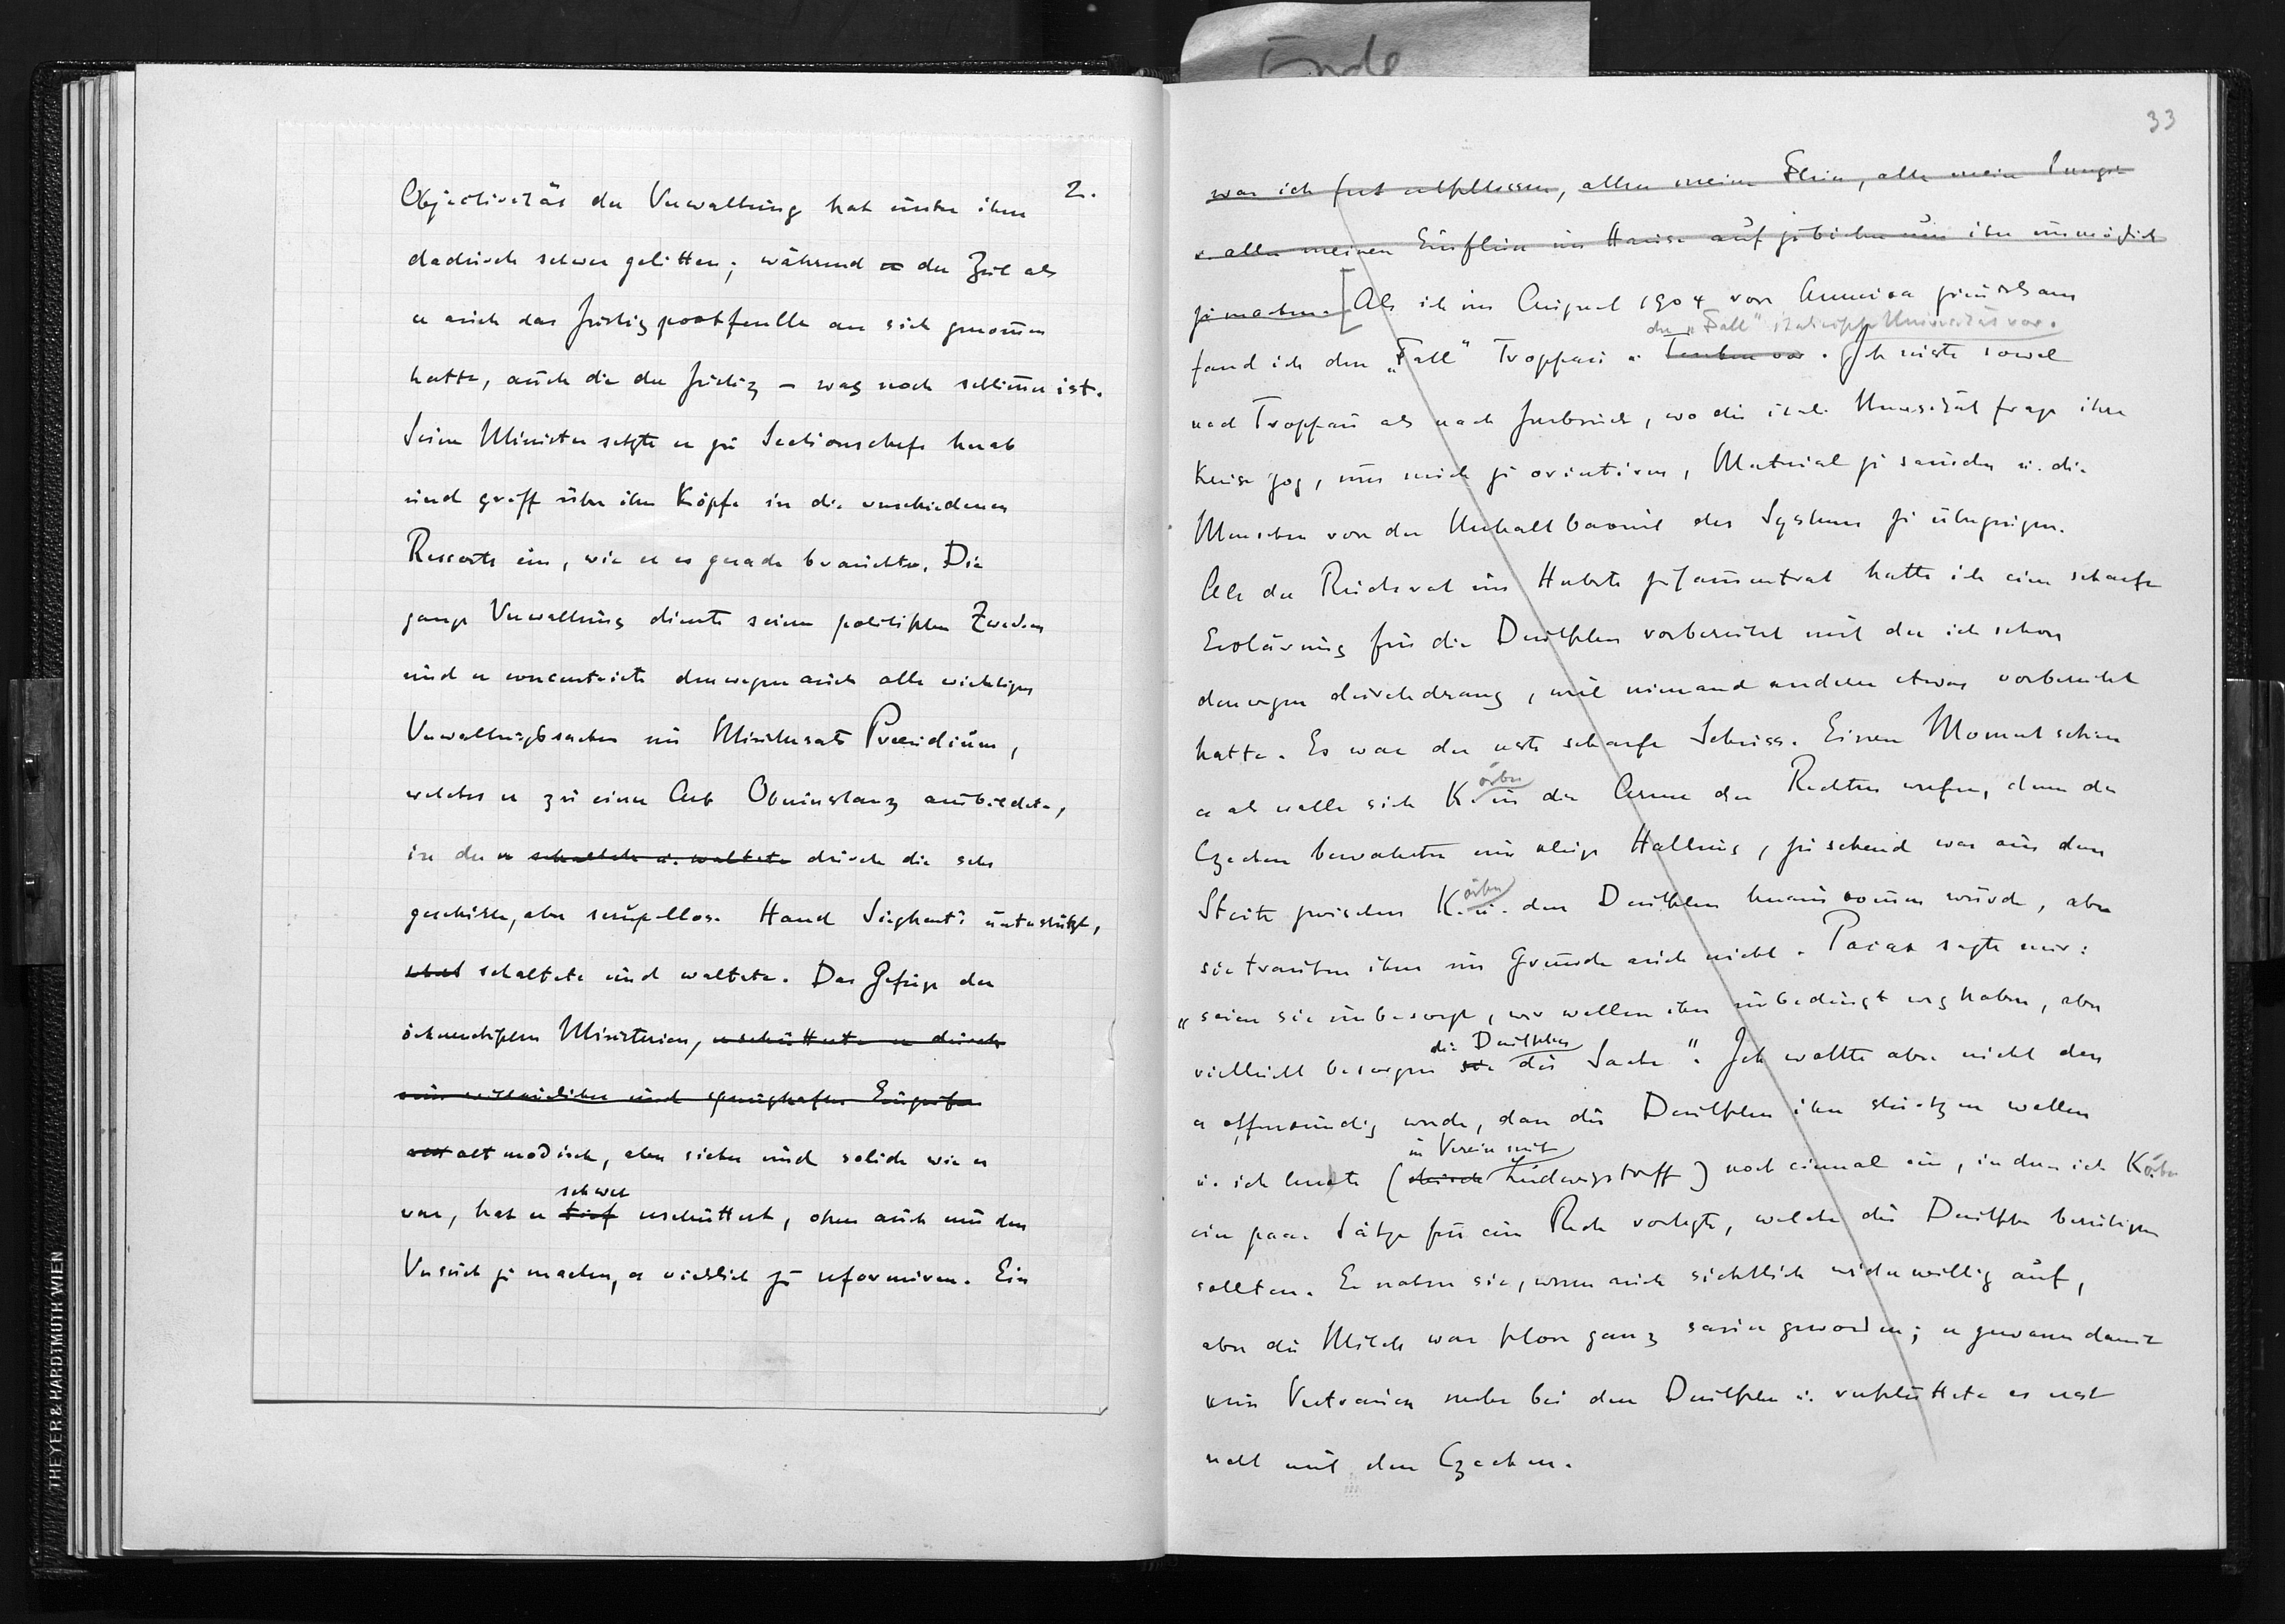 Ende
2.
Objectivität der Verwaltung hat unter ihm
dadurch schwer gelitten; während er der Zeit als
er auch das Justizportfeuille an sich genomen
hatte, auch die der Justiz – was noch schlimer ist.
Seine Minister setzte er zu Sectionschefs herab
und griff über ihre Köpfe in die verschiedenen
Ressorts ein, wie er es gerade brauchte. Die
ganze Verwaltung diente seinen politischen Zwecken
und er concentrirte deswegen auch alle wichtigen
Verwaltungssachen im Ministerrats Praesidium,
welches er zu einer Art Oberinstanz ausbildete,
in der er schaltete u. waltete durch die sehr
geschickte, aber scrupellose Hand Sieghart's unterstützt,
schal schaltete und waltete. Das Gefüge der
österreichischen Ministerien, erschütterte er durch
sein willkürliches und sprunghaftes Eingreifen
altmodisch, aber sicher und solide wie es
schwer
war, hat er tief erschüttert, ohne auch nur den
Versuch zu machen, es wirklich zu reformiren. Ein
33
war ich fest entschlossen, allen meinen Fleiss, alle meine Energie
u. allen meinen Einfluss im Hause aufzubieten um ihn unmöglich
zu machen. [Als ich im August 1904 von America zurückkam
den "Fall" italienische Universität vor.
fand ich den „Fall" Troppau u. Teschen vor. Ich reiste sowol
nach Troppau als nach Insbruck, wo die ital. Universitätsfrage ihre
Kreise zog, um mich zu orientiren, Material zu sameln u. die
Menschen von der Unhaltbarkeit des Systems zu überzeugen.
Als der Reichsrat im Herbste zusamentrat hatte ich eine scharfe
Erklärung für die Deutschen vorbereitet mit der ich schon
deswegen durchdrang, weil niemand anderer etwas vorbereitet
hatte. Es war der erste scharfe Schuss. Einen Moment schien
örber
es als wolle sich K. in die Arme der Rechten werfen, denn die
Czechen bewahrten eine ruhige Haltung, zusehend was aus dem
örber
Streite zwischen K. u. den Deutschen herauskomen würde, aber
sie trauten ihm im Grunde auch nicht. Pacak sagte mir:
„seien sie unbesorgt, wir wollen ihn unbedingt weg haben, aber
die Deutschen
vielleicht besorgen sie die Sache". Ich wollte aber nicht dass
es offenkundig werde, dass die Deutschen ihn stürzen wollen
im Verein mit
u. ich lenkte (durch Ludwigstorff) noch einmal ein, indem ich Körber
ein paar Sätze für eine Rede vorlegte, welche die Deutschen beruhigen
sollten. Er nahm sie, wenn auch sichtlich widerwillig auf,
aber die Milch war schon ganz sauer geworden; er gewann damit
kein Vertrauen mehr bei den Deutschen u. verschüttete es erst
recht mit den Czechen.
THEYER & HARDTMUTH WIEN